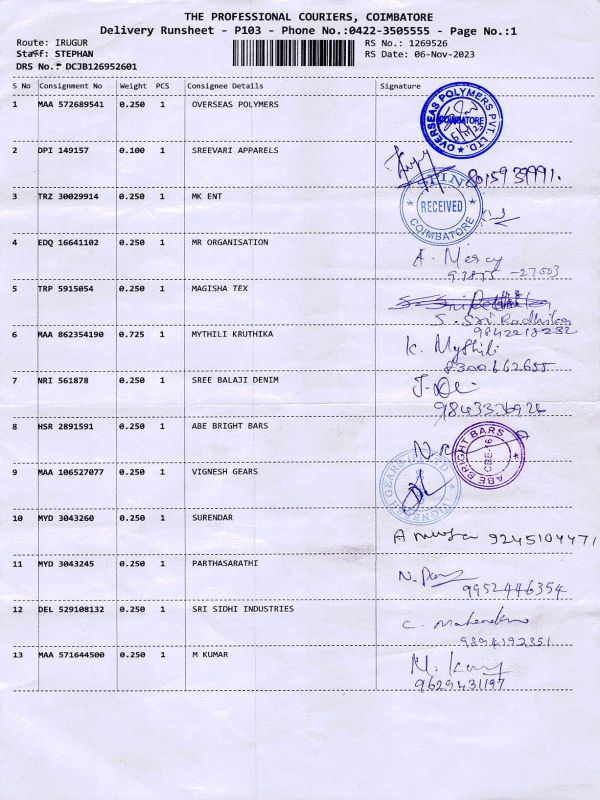 THE PROFESSIONAL COURIERS, COIMBATORE
Delivery Runsheet - P103 - Phone No.:0422-3505555 - Page No.:1
Route: IRUGUR RS No.: 1269526
Staff: STEPHAN RS Date: 06-Nov-2023
DRS No.: DCJB126952601
S No Consignment No Weight PCS Consignee Details Signature
1 MAA 572689541 0.250 1 OVERSEAS POLYMERS
OVERSEAS POLYMERS PVT. LTD. COIMBATORE
2 DPI 149157 0.100 1 SREEVARI APPARELS
8015939991.
3 TRZ 30029914 0.250 1 MK ENT
RECEIVED COIMBATORE
4 EDQ 16641102 0.250 1 MR ORGANISATION
A. Mercy
5 TRP 5915054 0.250 1 MAGISHA TEX
S. Sri Radhika
6 MAA 862354190 0.725 1 MYTHILI KRUTHIKA
K. Mythili
8300662655
7 NRI 561878 0.250 1 SREE BALAJI DENIM
8 HSR 2891591 0.250 1 ABE BRIGHT BARS
ABE BRIGHT BARS CBE-16
9 MAA 106527077 0.250 1 VIGNESH GEARS
VIGNESH GEARS
10 MYD 3043260 0.250 1 SURENDAR
9245104471
11 MYD 3043245 0.250 1 PARTHASARATHI
9952446354
12 DEL 529108132 0.250 1 SRI SIDHI INDUSTRIES
9894192351
13 MAA 571644500 0.250 1 M KUMAR
9629431197